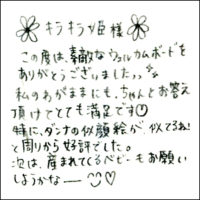 キラキラ姫様
この度は、素敵なウェルカムボードを
ありがとうございました♪♪
私のわがままにも、ちゃんとお答え
頂けてとても満足です
特に、ダンナの似顔絵が、似てるね!
と周りから好評でした。
次は、産まれてくるベビーもお願い
しようかなー ♡